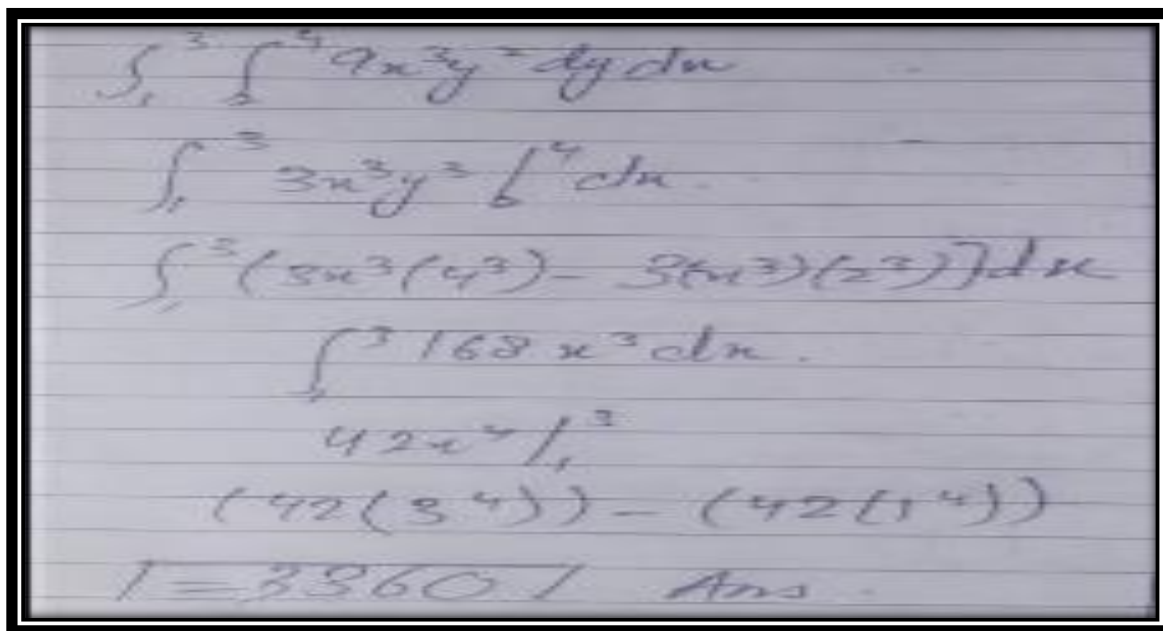 ∫₁³ ∫₂⁴ 9x³y² dy dx
∫₁³ 3x³y³ |₂⁴ dx.
∫₁³ (3x³(4³) - 3(x³)(2³)] dx
∫₁³ 168 x³ dx.
42x⁴ |₁³
(42(3⁴)) - (42(1⁴))
= 3360 Ans.